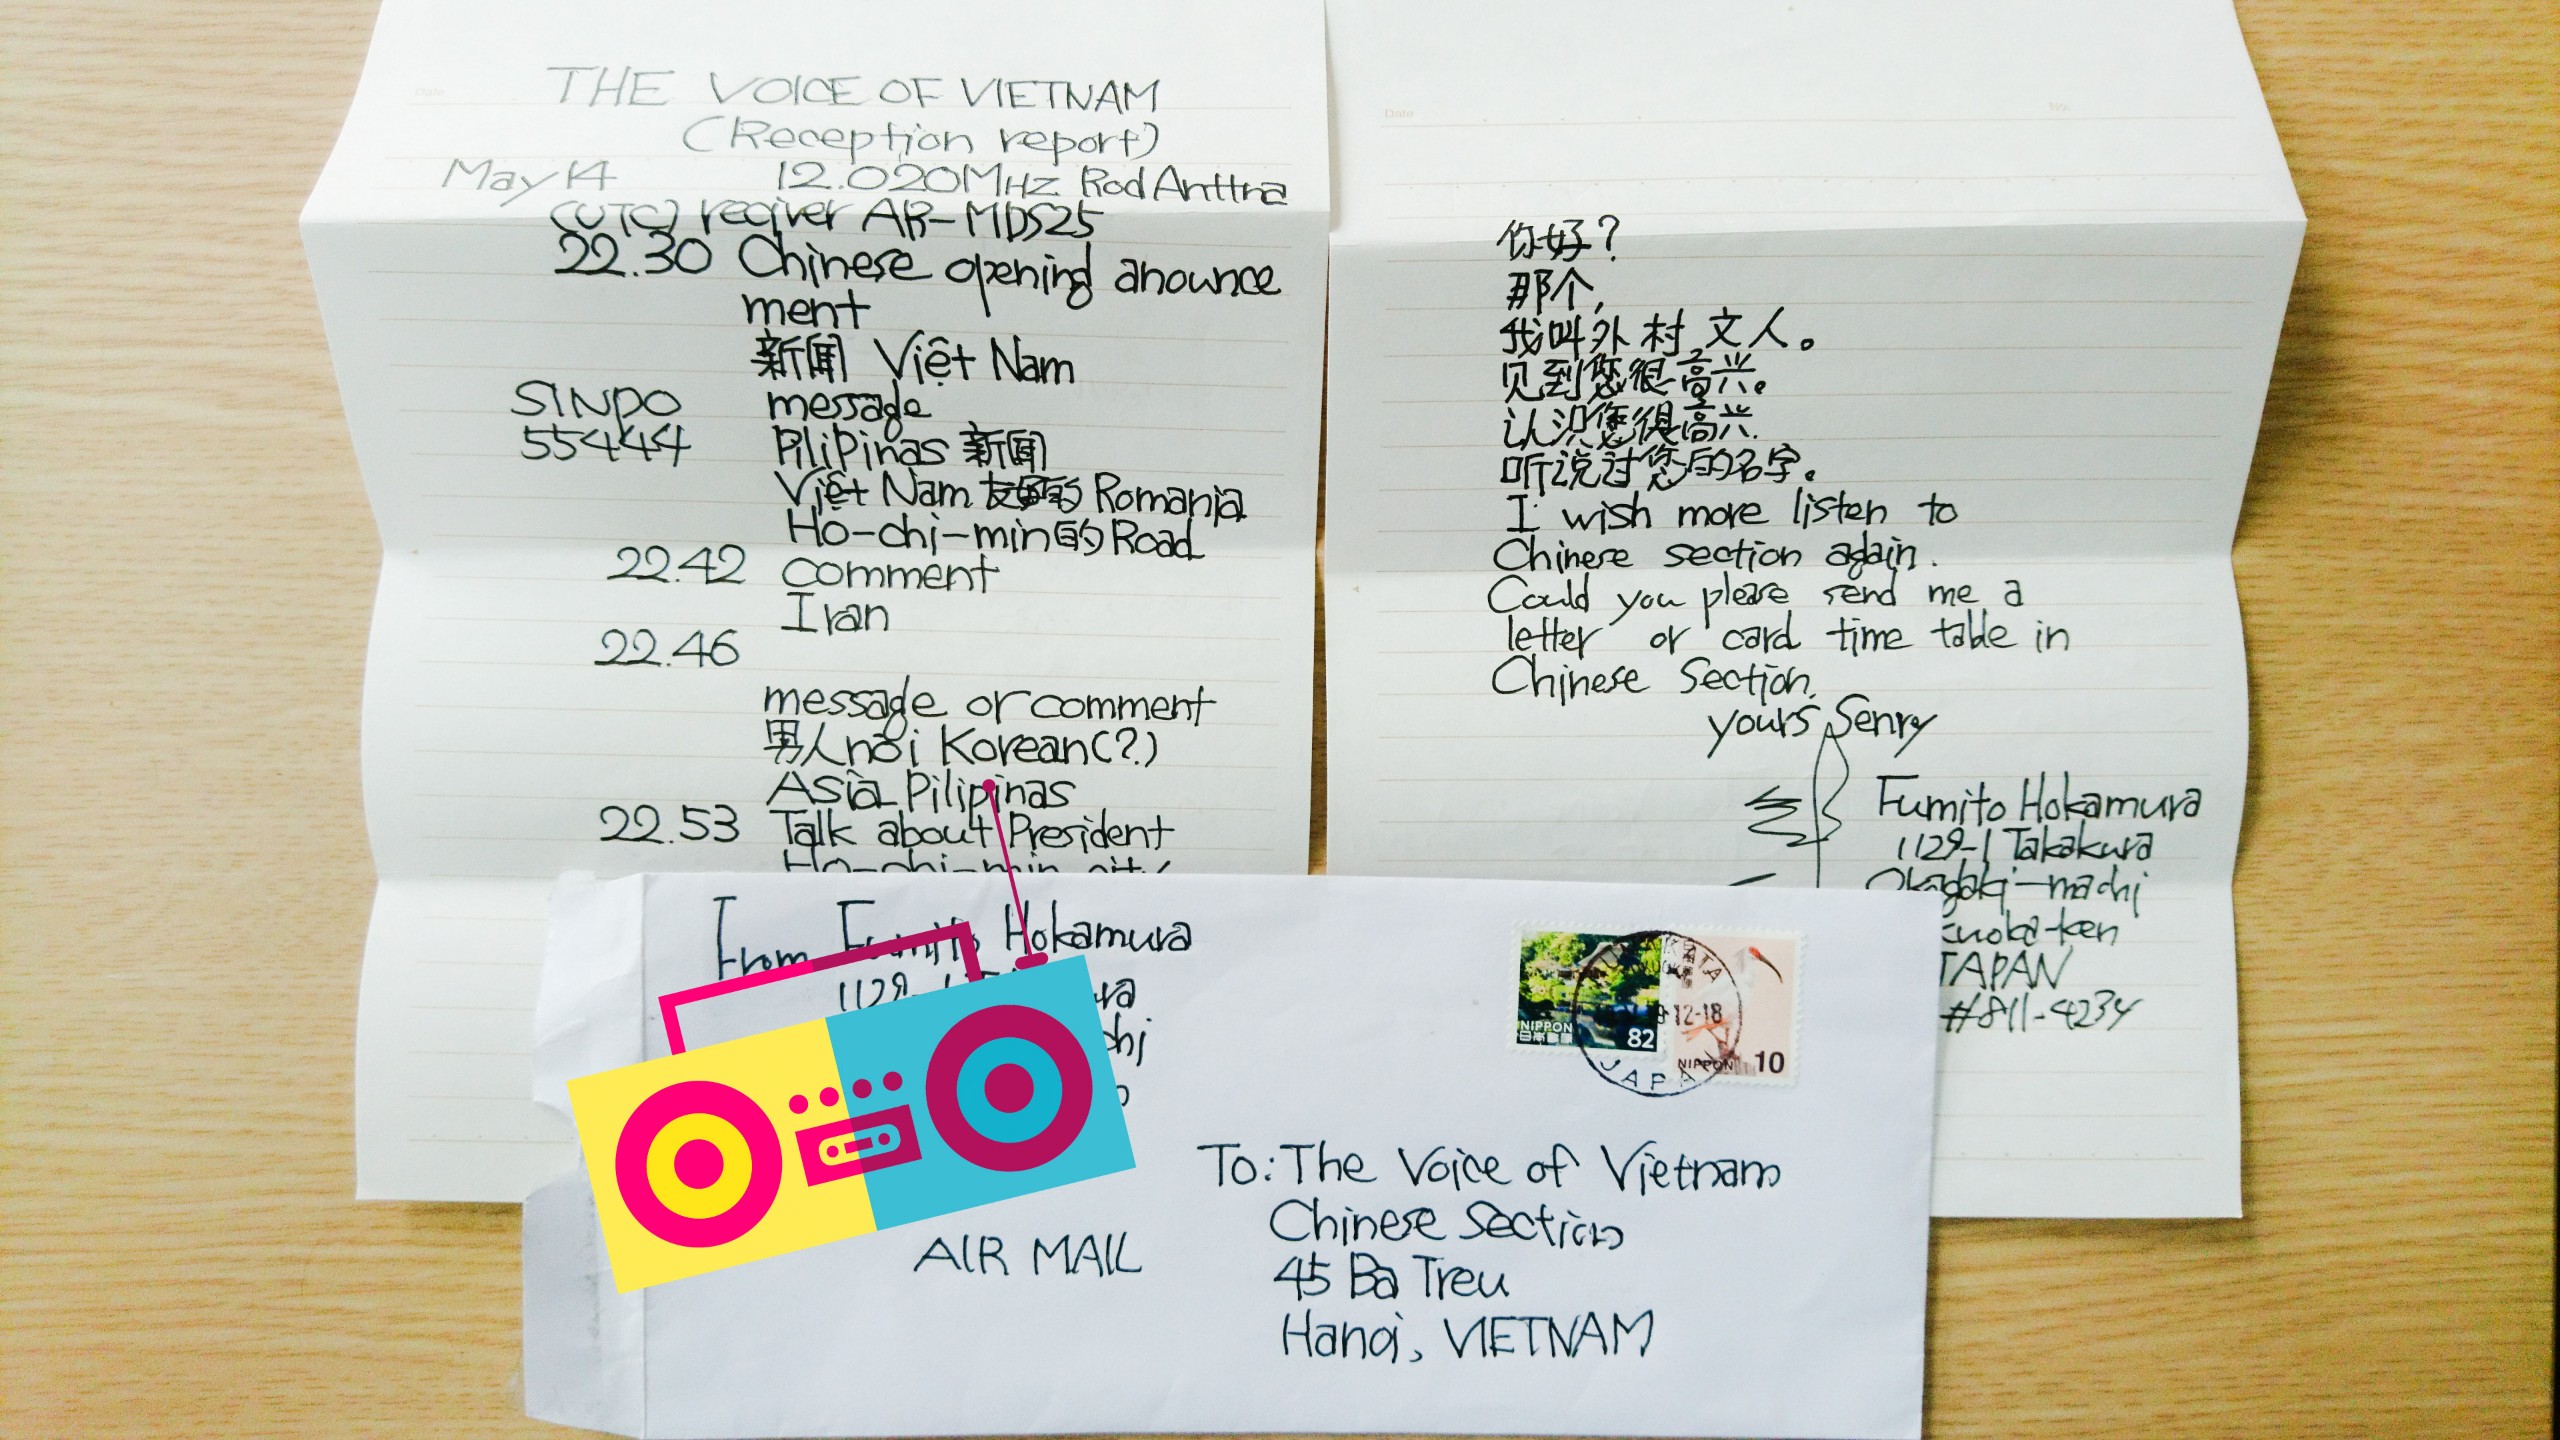 THE VOICE OF VIETNAM
(Reception report)
May 14 12.020MHz Rod Anttna
(UTC) reciver AR-MDS25
22.30 Chinese opening anounce
ment
新闻 Việt Nam
SINPO message
55444 PiliPinas 新闻
Việt Nam 友好的 Romania
Ho-chi-min的Road
22.42 comment
Iran
22.46
message or comment
男人nói Korean(?)
Asia Pilipinas
22.53 Talk about President
Ho-chi-min city
Date
No.
你好?
那个,
我叫外村 文人。
见到您很高兴。
认识您很高兴.
听说过您的名字。
I wish more listen to
Chinese section again.
Could you please send me a
letter or card time table in
Chinese Section.
yours Senry
Fumito Hokamura
1129-1 Takakura
Okagaki-machi
kuoka-ken
JAPAN
#811-4234
From Fumito Hokamura
1129-1
NIPPON
日本郵便
82
NIPPON 10
12-18
JAPAN
To: The Voice of Vietnam
Chinese Section
45 Ba Treu
Hanoi, VIETNAM
AIR MAIL